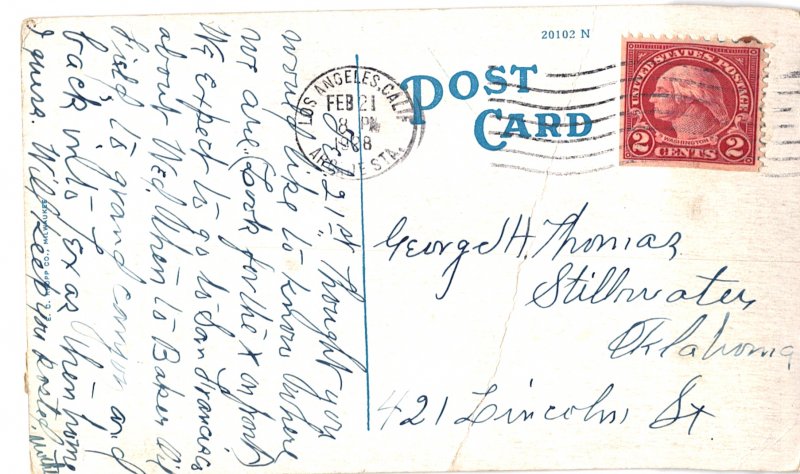 20102 N
POST
CARD
LOS ANGELES, CALIF.
FEB 21
8 PM
ARCADE STA.
UNITED STATES POSTAGE
WASHINGTON
2 CENTS 2
21st Thought you
would like to know where
we are. Look for the x on front
We expect to go to San Francisco
about Wed. then to Baker
field to grand canyon and
back into Texas then home
I guess. Will keep you posted,
George H. Thomas
Stillwater
Oklahoma
421 Lincoln St
E. C. KROPP CO., MILWAUKEE